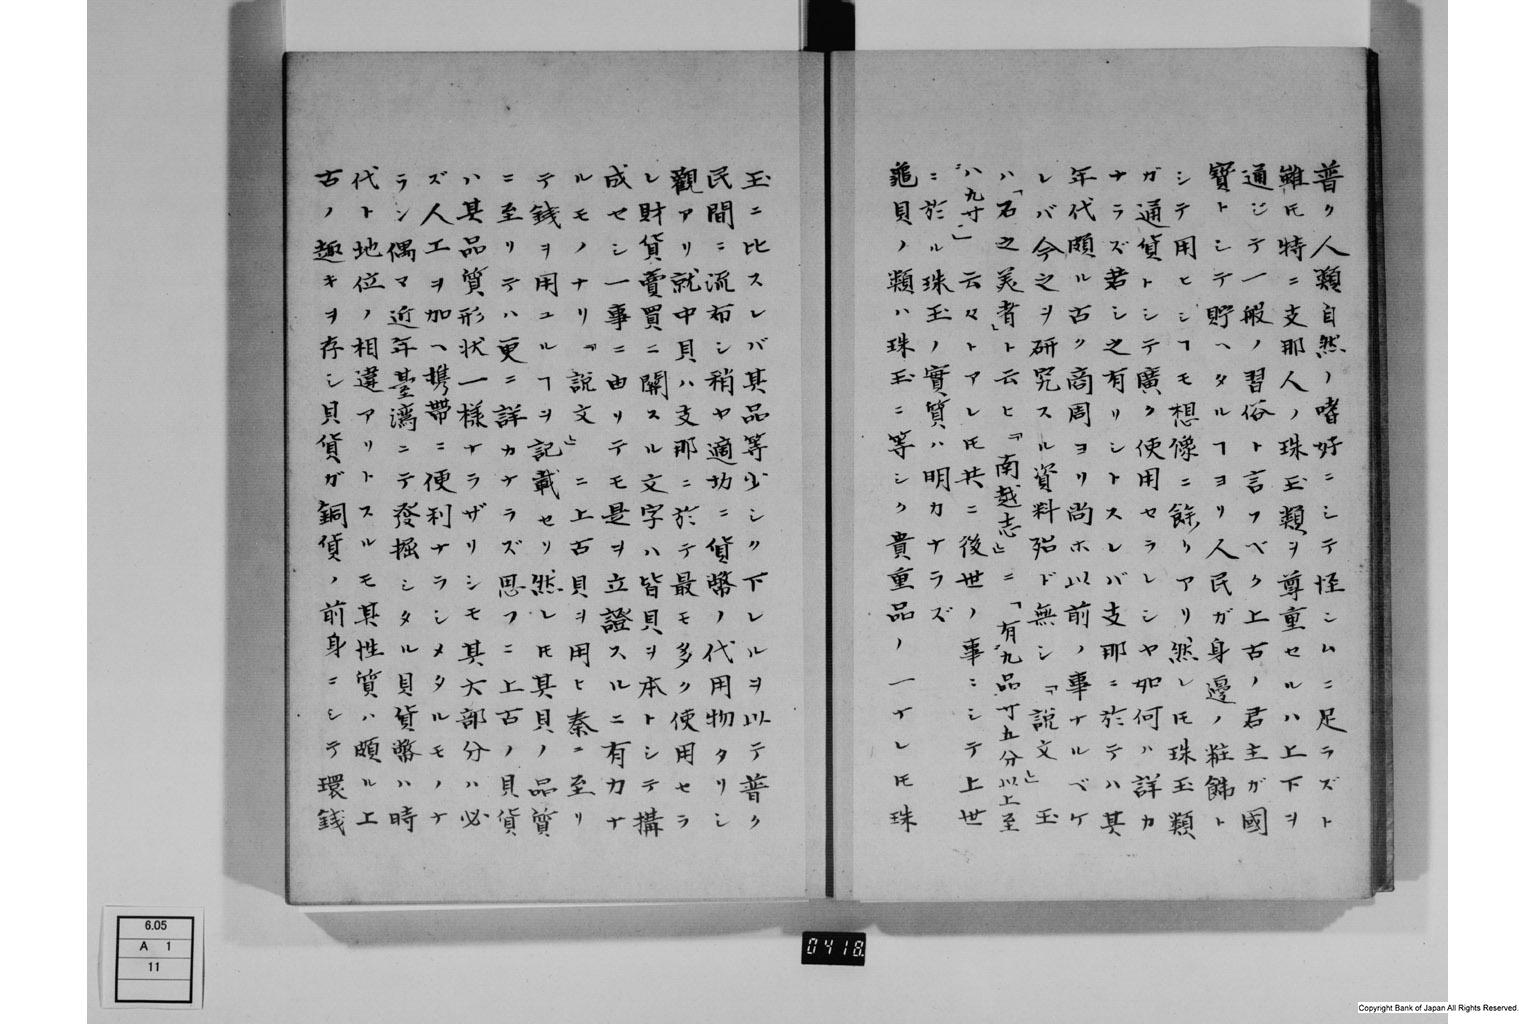 普ク人類自然ノ嗜好ニシテ怪シムニ足ラズト
雖𪜈特ニ支那人ノ珠玉類ヲ尊重セルハ上下ヲ
通ジテ一般ノ習俗ト言フベク上古ノ君主ガ國
寶トシテ貯ヘタルヿヨリ人民ガ身邊ノ粧飾ト
シテ用ヒシヿモ想像ニ餘リアリ然レ𪜈珠玉類
ガ通貨トシテ廣ク使用セラレシヤ如何ハ詳カ
ナラズ若シ之有リシトスレバ支那ニ於テハ其
年代頗ル古ク商周ヨリ尚ホ以前ノ事ナルベケ
レバ今之ヲ研究スル資料殆ド無シ「説文」玉
ハ「石之美者」ト云ヒ「南越志」ニ「有九品寸五分以上至
八九寸」云々トアレ𪜈共ニ後世ノ事ニシテ上世
ニ於ル珠玉ノ實質ハ明カナラズ
龜貝ノ類ハ珠玉ニ等シク貴重品ノ一ナレ𪜈珠
玉ニ比スレバ其品等少シク下レルヲ以テ普ク
民間ニ流布シ稍ヤ適切ニ貨幣ノ代用物タリシ
觀アリ就中貝ハ支那ニ於テ最モ多ク使用セラ
レ財貨賣買ニ關スル文字ハ皆貝ヲ本トシテ構
成セシ一事ニ由リテモ是ヲ立證スルニ有力ナ
ルモノナリ「説文」ニ上古貝ヲ用ヒ秦ニ至リ
テ錢ヲ用ユルヿヲ記載セリ然レ𪜈其貝ノ品質
ニ至リテハ更ニ詳カナラズ思フニ上古ノ貝貨
ハ其品質形状一様ナラザリシモ其大部分ハ必
ズ人工ヲ加ヘ携帶ニ便利ナラシメタルモノナ
ラン偶マ近年臺灣ニテ發掘シタル貝貨幣ハ時
代ト地位ノ相違アリトスルモ其性質ハ頗ル上
古ノ趣キヲ存シ貝貨ガ銅貨ノ前身ニシテ環錢
6.05
A 1
11
0418.
Copyright Bank of Japan All Rights Reserved.